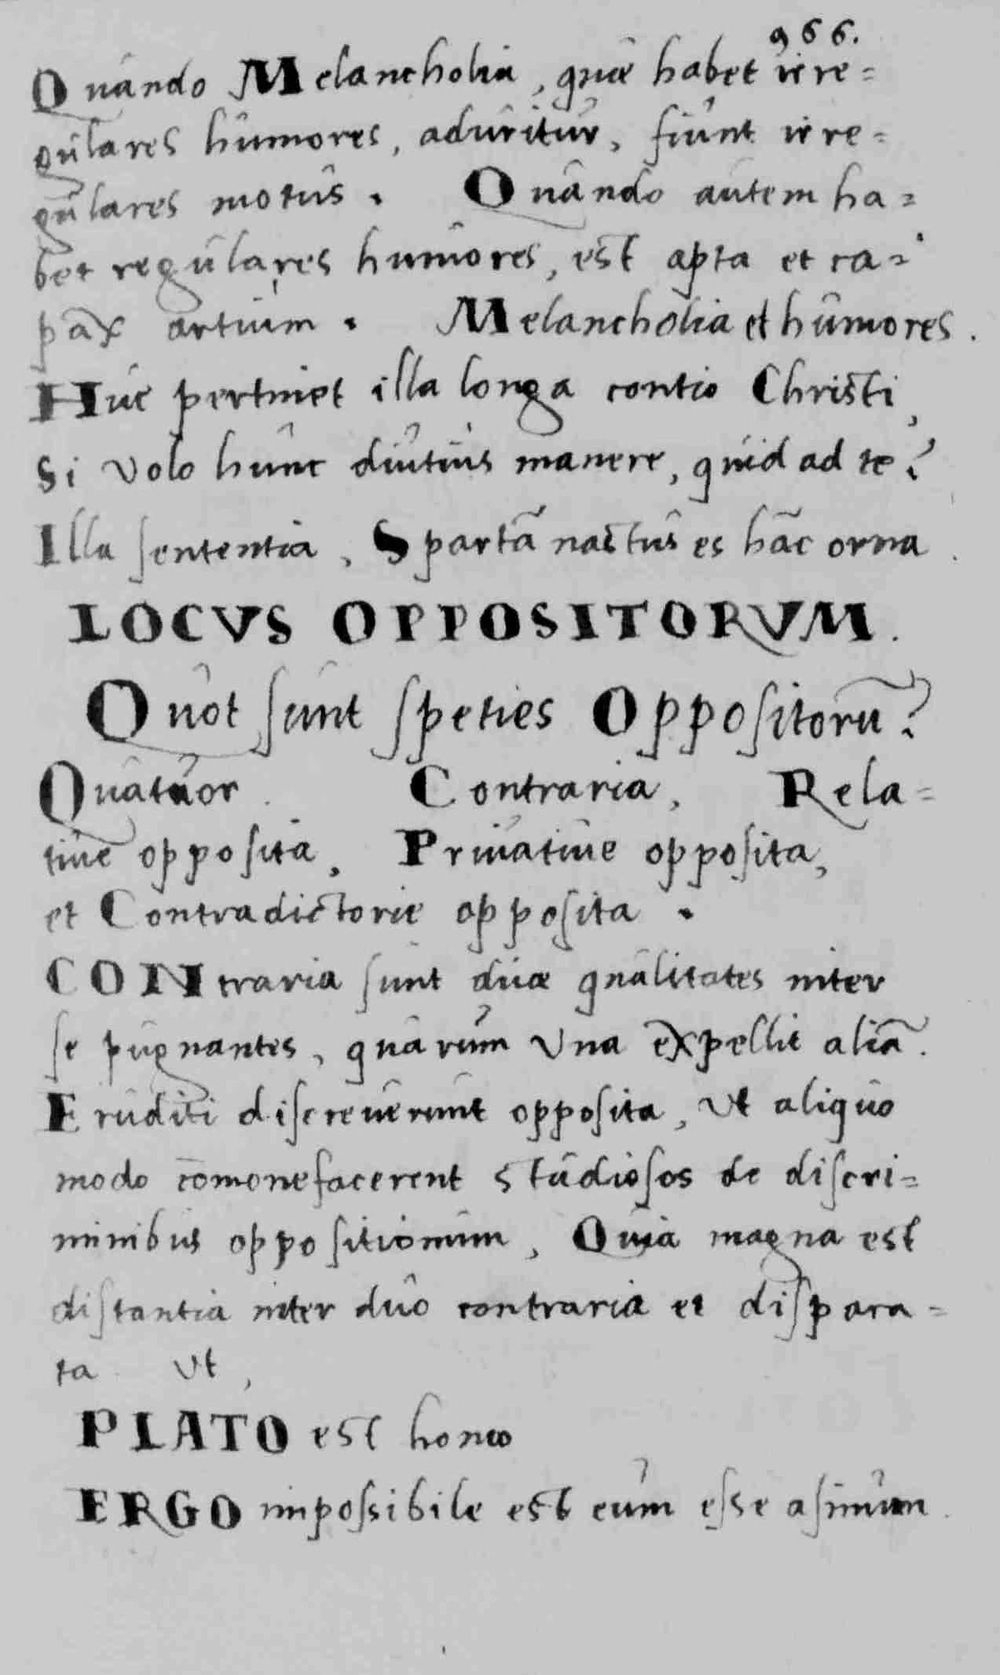 966.
Quando Melancholia, quæ habet irre=
gulares humores, aduritur, fiunt irre=
gulares motus. Quando autem ha=
bet regulares humores, est apta et ca=
pax artium. Melancholia et humores.
Huc pertinet illa longa contio Christi,
Si volo hunc diutius manere, quid ad te?
Illa sententia, Spartā nactus es hāc orna.
LOCVS OPPOSITORVM.
Quot sunt speties Oppositorū?
Quatuor. Contraria, Rela=
tiue opposita, Priuatiue opposita,
et Contradictorie opposita.
CONtraria sunt duæ qualitates inter
se pugnantes, quarum vna expellit aliā.
Eruditi discreuerunt opposita, vt aliquo
modo cōmonefacerent studiosos de discri=
minibus oppositionum, Quia magna est
distantia inter duo contraria et dispara=
ta vt,
PLATO est homo
ERGO impossibile est eum esse asinum.